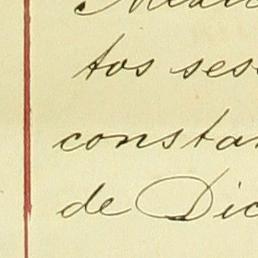 tos ses
constan
de Dic